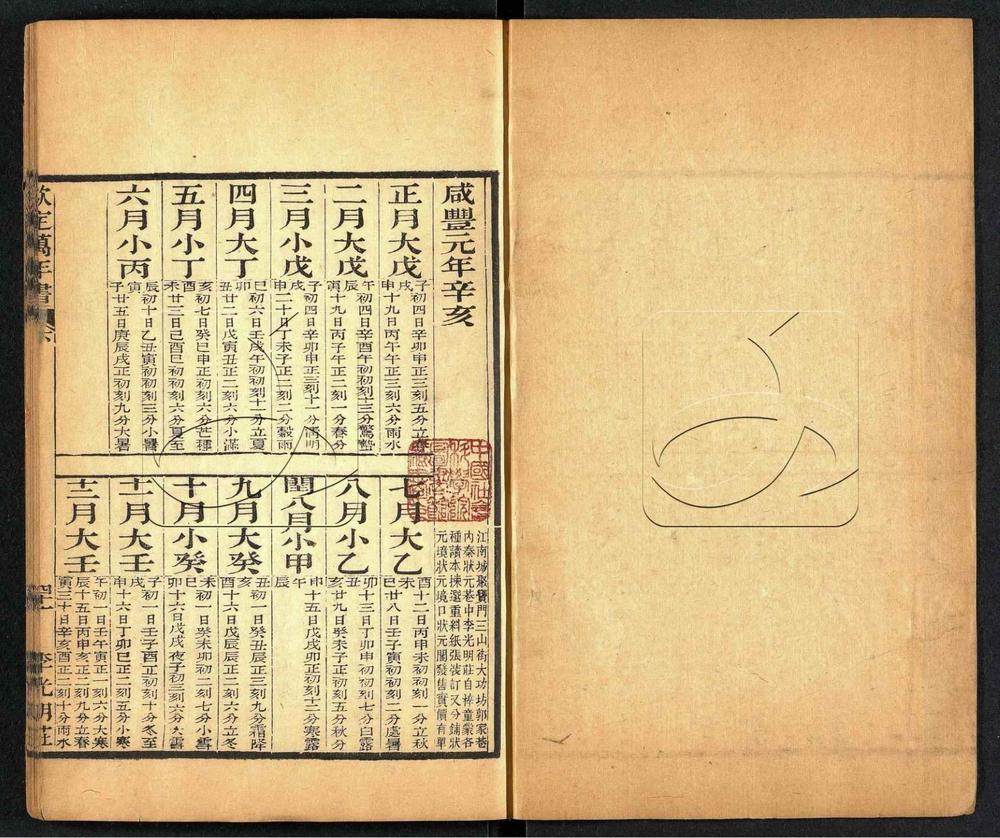 咸豐元年辛亥
正月大戊
子初四日辛卯申正三刻五分立春
戌
申十九日丙午午正三刻六分雨水
二月大戊
午初四日辛酉午初初刻十三分驚蟄
辰
寅十九日丙子午正二刻一分春分
三月小戊
子初四日辛卯申正三刻十一分清明
戌
申二十日丁未子正二刻二分穀雨
四月大丁
巳初六日壬戌午初初刻十一分立夏
卯
丑廿二日戊寅丑正二刻六分小滿
五月小丁
亥初七日癸巳申正初刻六分芒種
酉
未廿三日己酉巳初初刻六分夏至
六月小丙
辰初十日乙丑寅初初刻三分小暑
寅
子廿五日庚辰戌正初刻九分大暑
江南城聚寶門三山街大功坊郭家巷
內秦狀元巷中李光明莊自梓童蒙各
種讀本揀選重料紙張裝訂又分鋪狀
元境狀元境口狀元閣發售實價有單
七月大乙
酉十二日丙申未初初刻一分立秋
未
巳廿八日壬子寅初初刻二分處暑
八月小乙
卯十三日丁卯申初初刻七分白露
丑
亥廿九日癸未子正初刻五分秋分
閏八月小甲
申十五日戊戌卯正初刻十二分寒露
午
辰
九月大癸
丑初一日癸丑辰正三刻九分霜降
亥
酉十六日戊辰辰正二刻六分立冬
十月小癸
未初一日癸未卯初二刻七分小雪
巳
卯十六日戊戌夜子初三刻六分大雪
十一月大壬
子初一日壬子酉正初刻十分冬至
戌
申十六日丁卯巳正二刻五分小寒
十二月大壬
午初一日壬午寅正一刻六分大寒
辰十五日丙申亥正二刻九分立春
寅三十日辛亥酉正二刻十分雨水
欽定萬年書
李光明莊